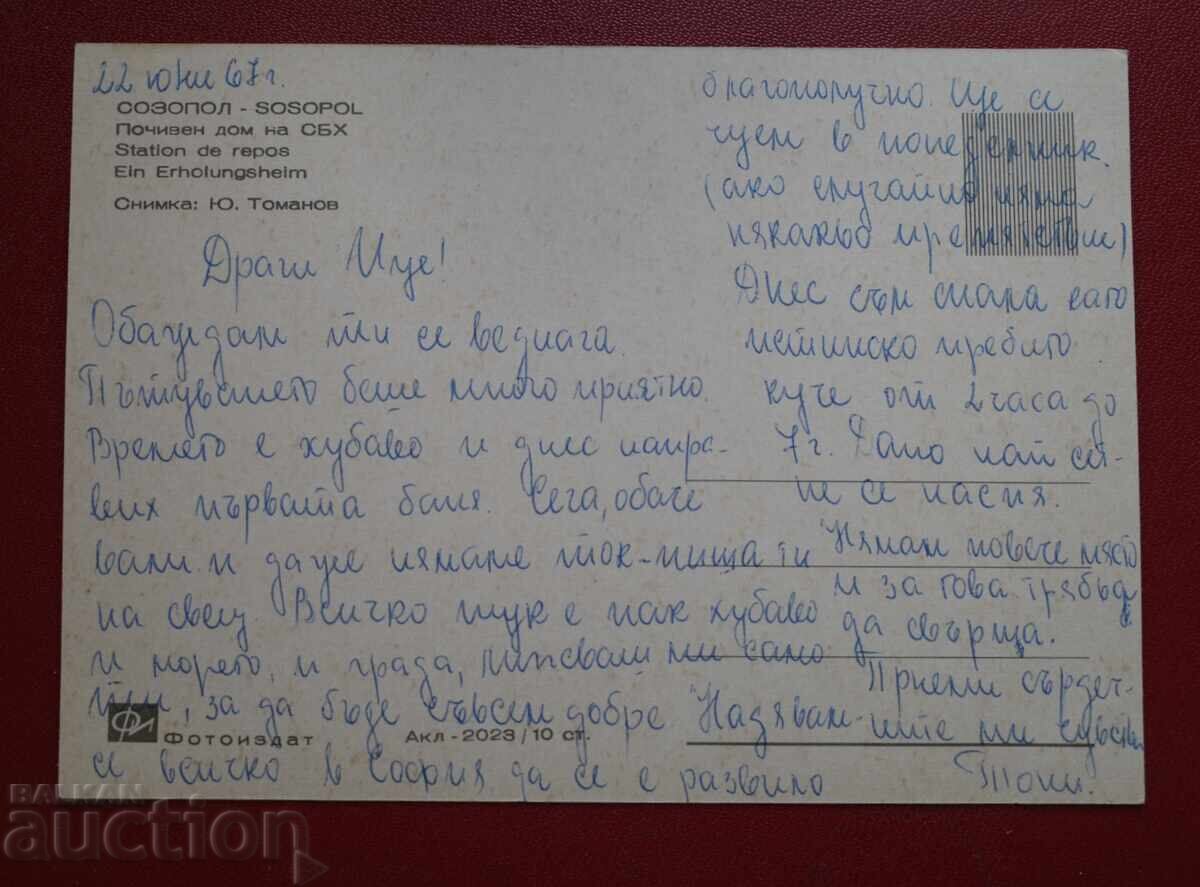 22 юни 67 г.
СОЗОПОЛ - SOSOPOL
Почивен дом на СБХ
Station de repos
Ein Erholungsheim
Снимка: Ю. Томанов
Драги Ице!
Обаждам ти се веднага.
Пътуването беше много приятно.
Времето е хубаво и днес напра-
вих първата баня. Сега, обаче
вали и даже нямаме ток - пиша ти
на свещ. Всичко тук е пак хубаво
и морето, и града, липсваш ми само
ти, за да бъде съвсем добре. Надявам
се всичко в София да се е развило
благополучно. Ще се
чуем в понеделник.
(ако случайно няма
някакво препятствие)
Днес съм спала като
истинско пребито
куче от 2 часа до
7 г. Дано най сет-
не се наспя.
Нямам повече място
и за това трябва
да свърша.
Приеми сърдеч-
ните ми чувства
Тони.
Фотоиздат
Акл - 2023/10 ст.
BALKAN
auction